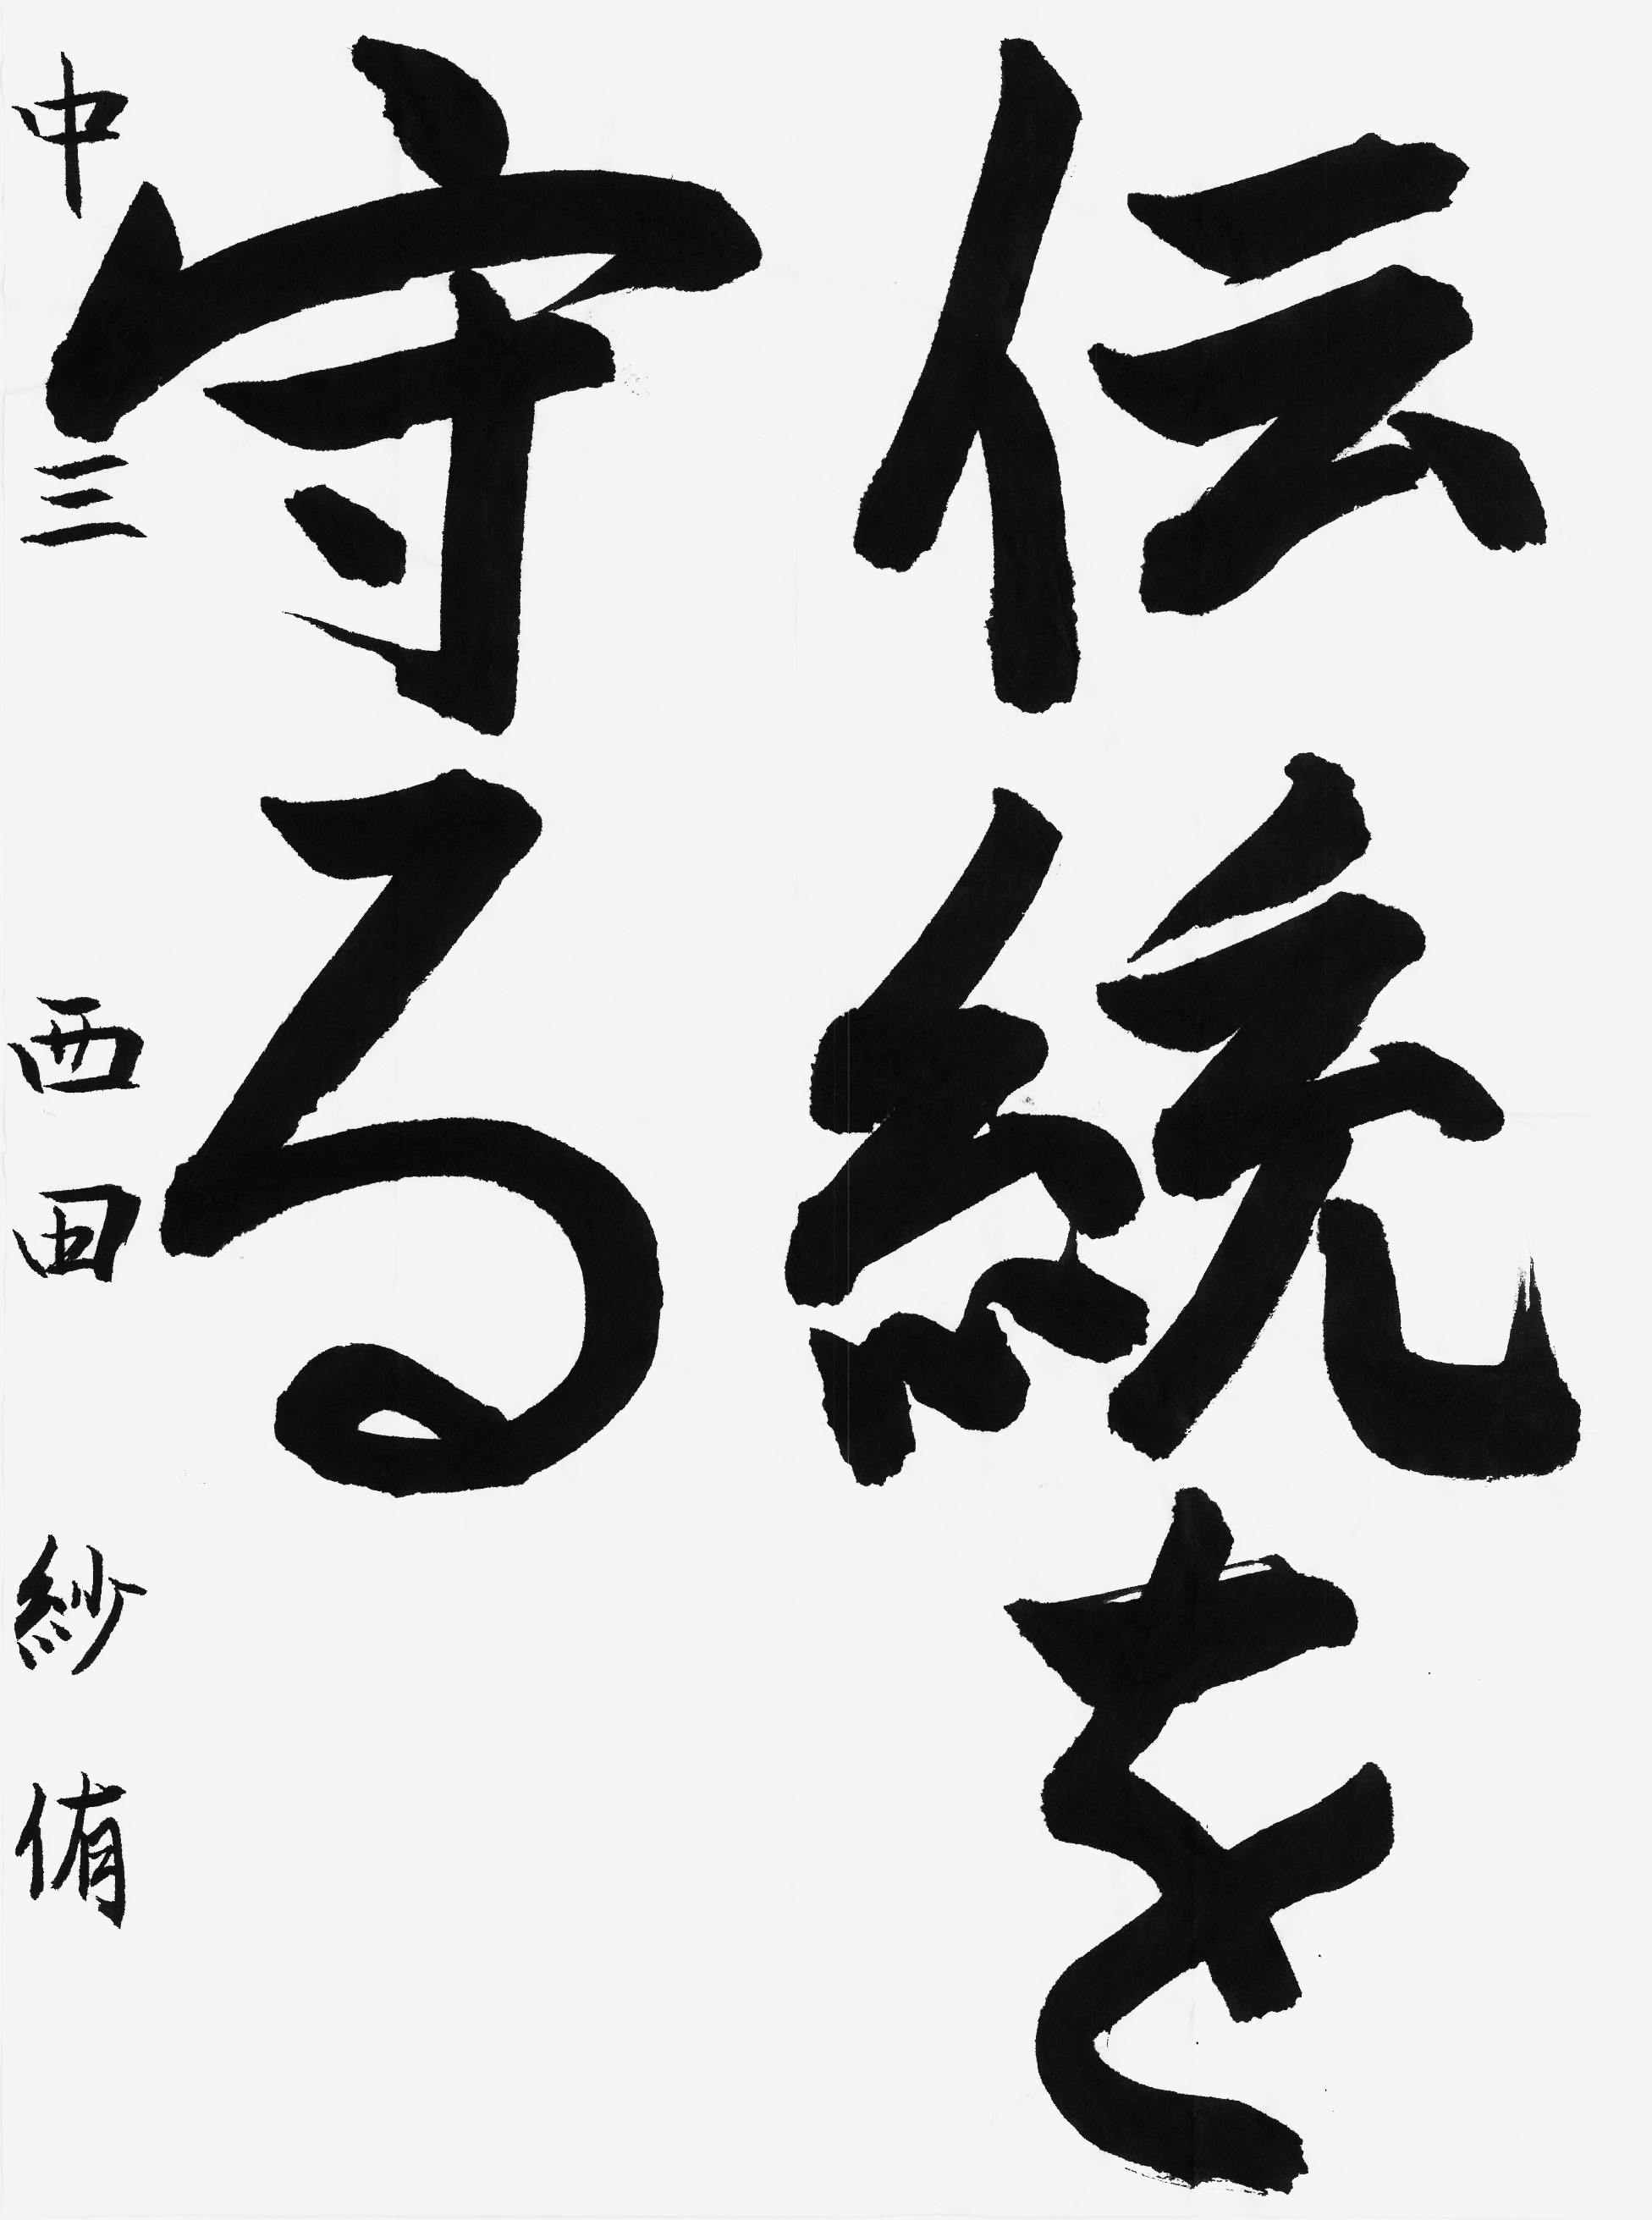 伝統を
守る
中三 西田 紗侑